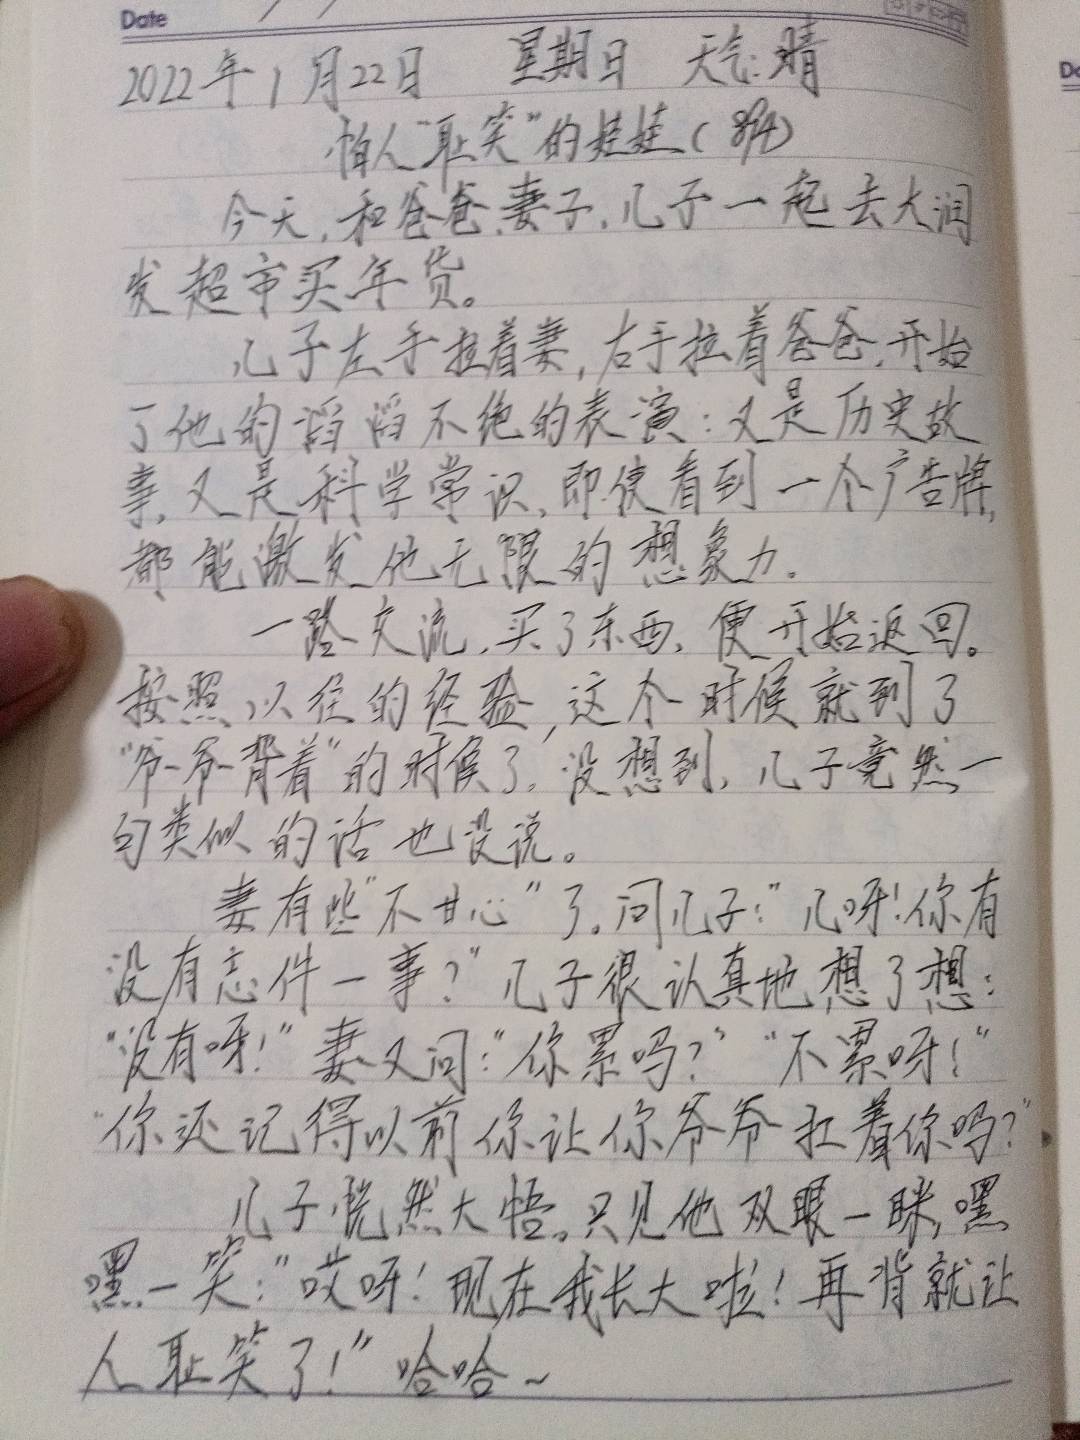 Date
2022年1月22日 星期日 天气:晴
怕人"耻笑"的娃娃(894)
今天,和爸爸、妻子、儿子一起去大润
发超市买年货。
儿子左手拉着妻,右手拉着爸爸,开始
了他的滔滔不绝的表演:又是历史故
事,又是科学常识,即使看到一个广告牌,
都能激发他无限的想象力。
一路交流,买了东西,便开始返回。
按照以往的经验,这个时候就到了
"爷爷背着"的时候了,没想到,儿子竟然一
句类似的话也没说。
妻有些"不甘心"了。问儿子:"儿呀!你有
没有忘件一事?"儿子很认真地想了想:
"没有呀!"妻又问:"你累吗?""不累呀!"
"你还记得以前你让你爷爷扛着你吗?"
儿子恍然大悟。只见他双眼一眯,嘿
嘿一笑:"哎呀!现在我长大啦!再背就让
人耻笑了!"哈哈~